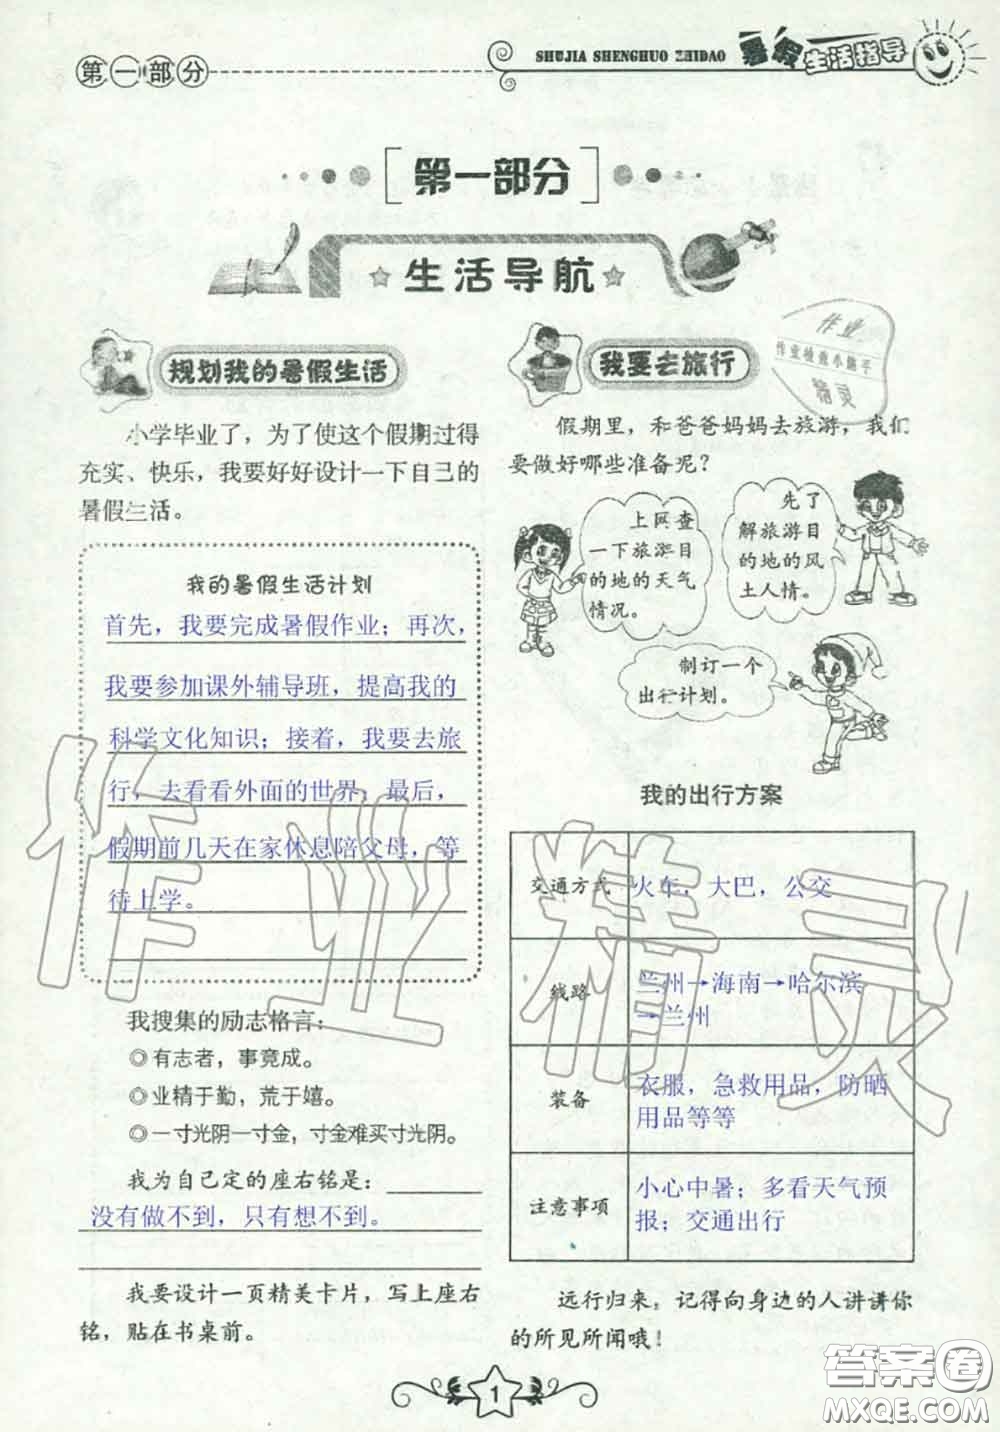 第一部分
SHUJIA SHENGHUO ZHIDAO 暑假生活指导
第一部分
生活导航
规划我的暑假生活
小学毕业了，为了使这个假期过得
充实、快乐，我要好好设计一下自己的
暑假生活。
我的暑假生活计划
首先，我要完成暑假作业；再次，
我要参加课外辅导班，提高我的
科学文化知识；接着，我要去旅
行，去看看外面的世界，最后，
假期前几天在家休息陪父母，等
待上学。
我搜集的励志格言：
◎有志者，事竟成。
◎业精于勤，荒于嬉。
◎一寸光阴一寸金，寸金难买寸光阴。
我为自己定的座右铭是：
没有做不到，只有想不到。
我要设计一页精美卡片，写上座右
铭，贴在书桌前。
我要去旅行
作业
作业检查小助手
精灵
假期里，和爸爸妈妈去旅游，我们
要做好哪些准备呢？
上网查
一下旅游目
的地的天气
情况。
先了
解旅游目
的地的风
土人情。
制订一个
出行计划。
我的出行方案
交通方式 火车，大巴，公交
线路 兰州→海南→哈尔滨
→兰州
装备 衣服，急救用品，防晒
用品等等
注意事项 小心中暑；多看天气预
报；交通出行
远行归来，记得向身边的人讲讲你
的所见所闻哦！
作业精灵
1
答案圈
MXQE.COM